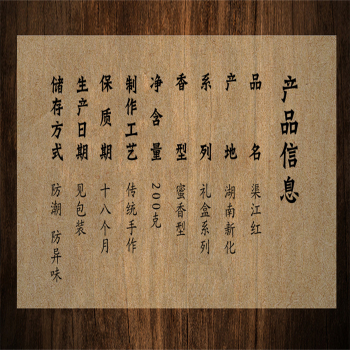 产品信息
品名 渠江红
产地 湖南新化
系列 礼盒系列
香型 蜜香型
净含量 200克
制作工艺 传统手作
保质期 十八个月
生产日期 见包装
储存方式 防潮 防异味